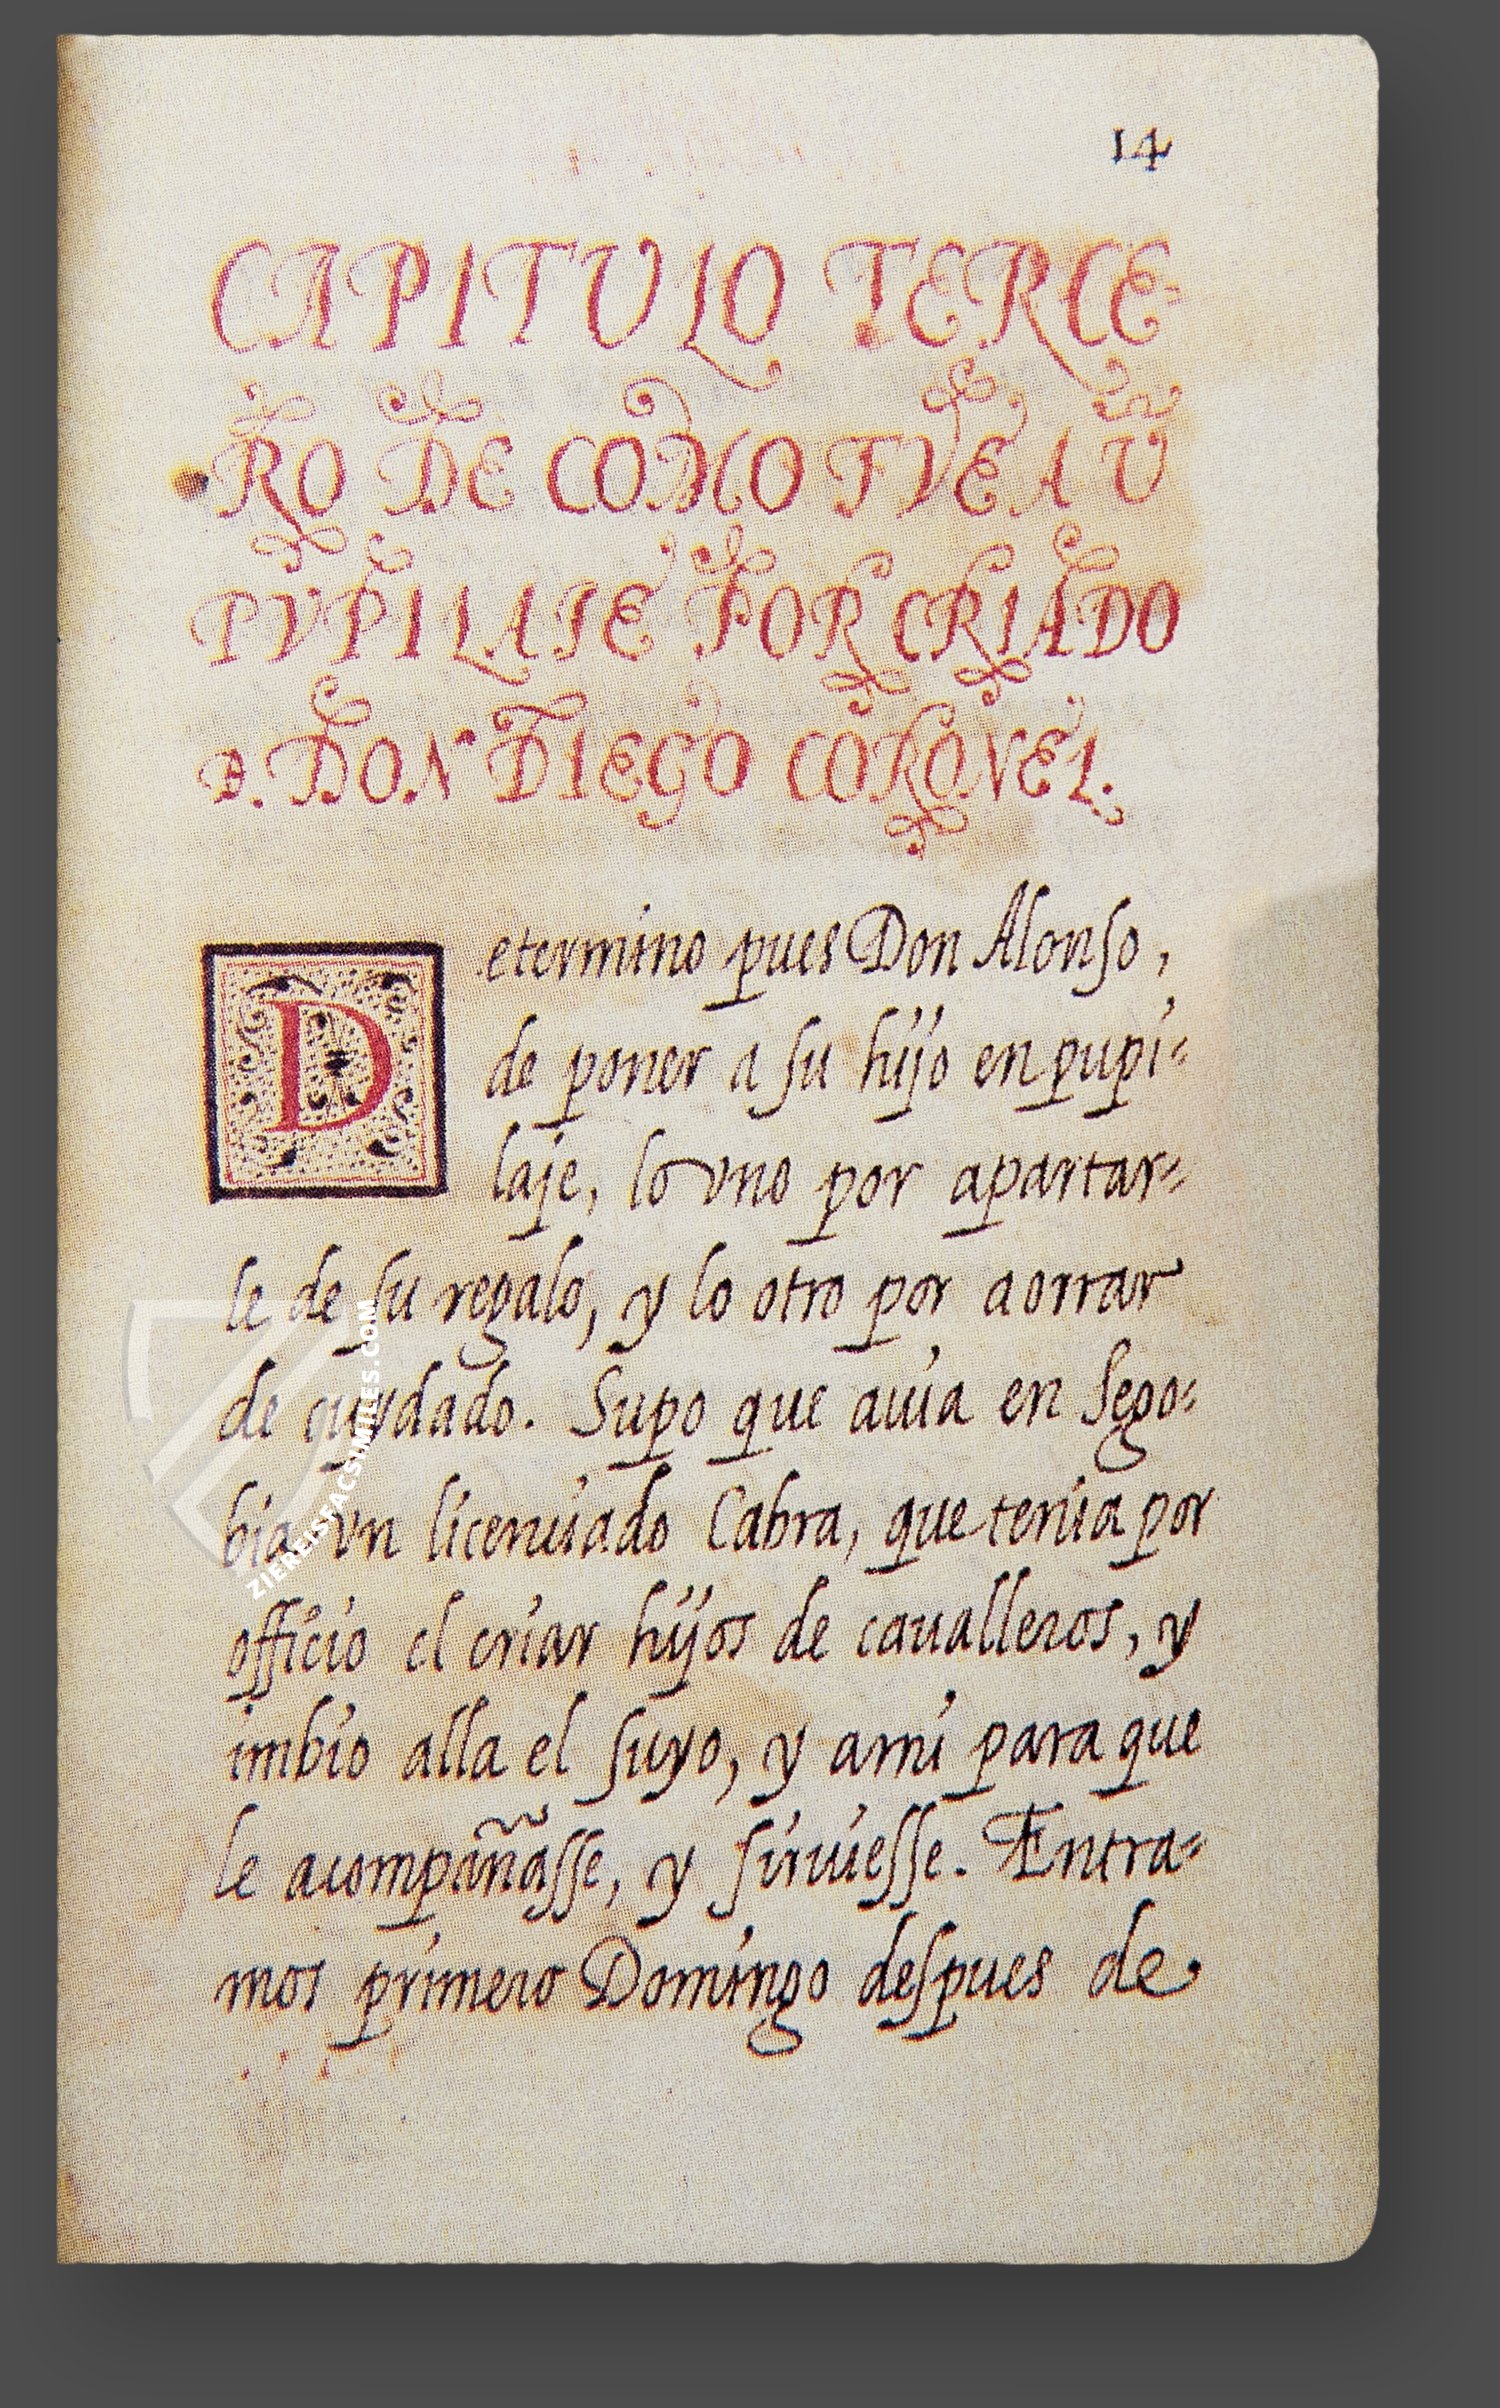 14
CAPITULO TERCE-
RO DE COMO FVE A Ū
PVPILAIE POR CRIADO
D. DON DIEGO CORONEL.
Determino pues Don Alonso,
de poner a su hijo en pupi-
laje, lo vno por apartar-
le de su regalo, y lo otro por aorrar
de cuydado. Supo que auia en Sego-
bia vn licenciado Cabra, que tenia por
officio el criar hijos de caualleros, y
imbio alla el suyo, y a mi para que
le acompañasse, y siruiesse. Entra-
mos primero Domingo despues de
ZIEREISFACSIMILES.COM